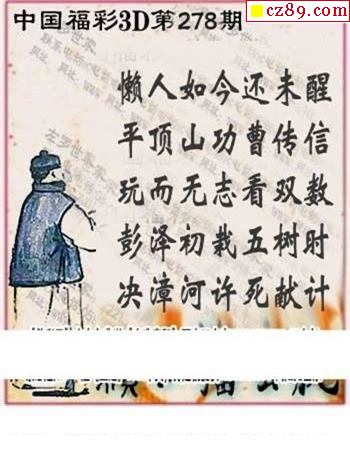 cz89.com
中国福彩3D第278期
懒人如今还未醒
平顶山功曹传信
玩而无志看双数
彭泽初栽五树时
决漳河许死献计